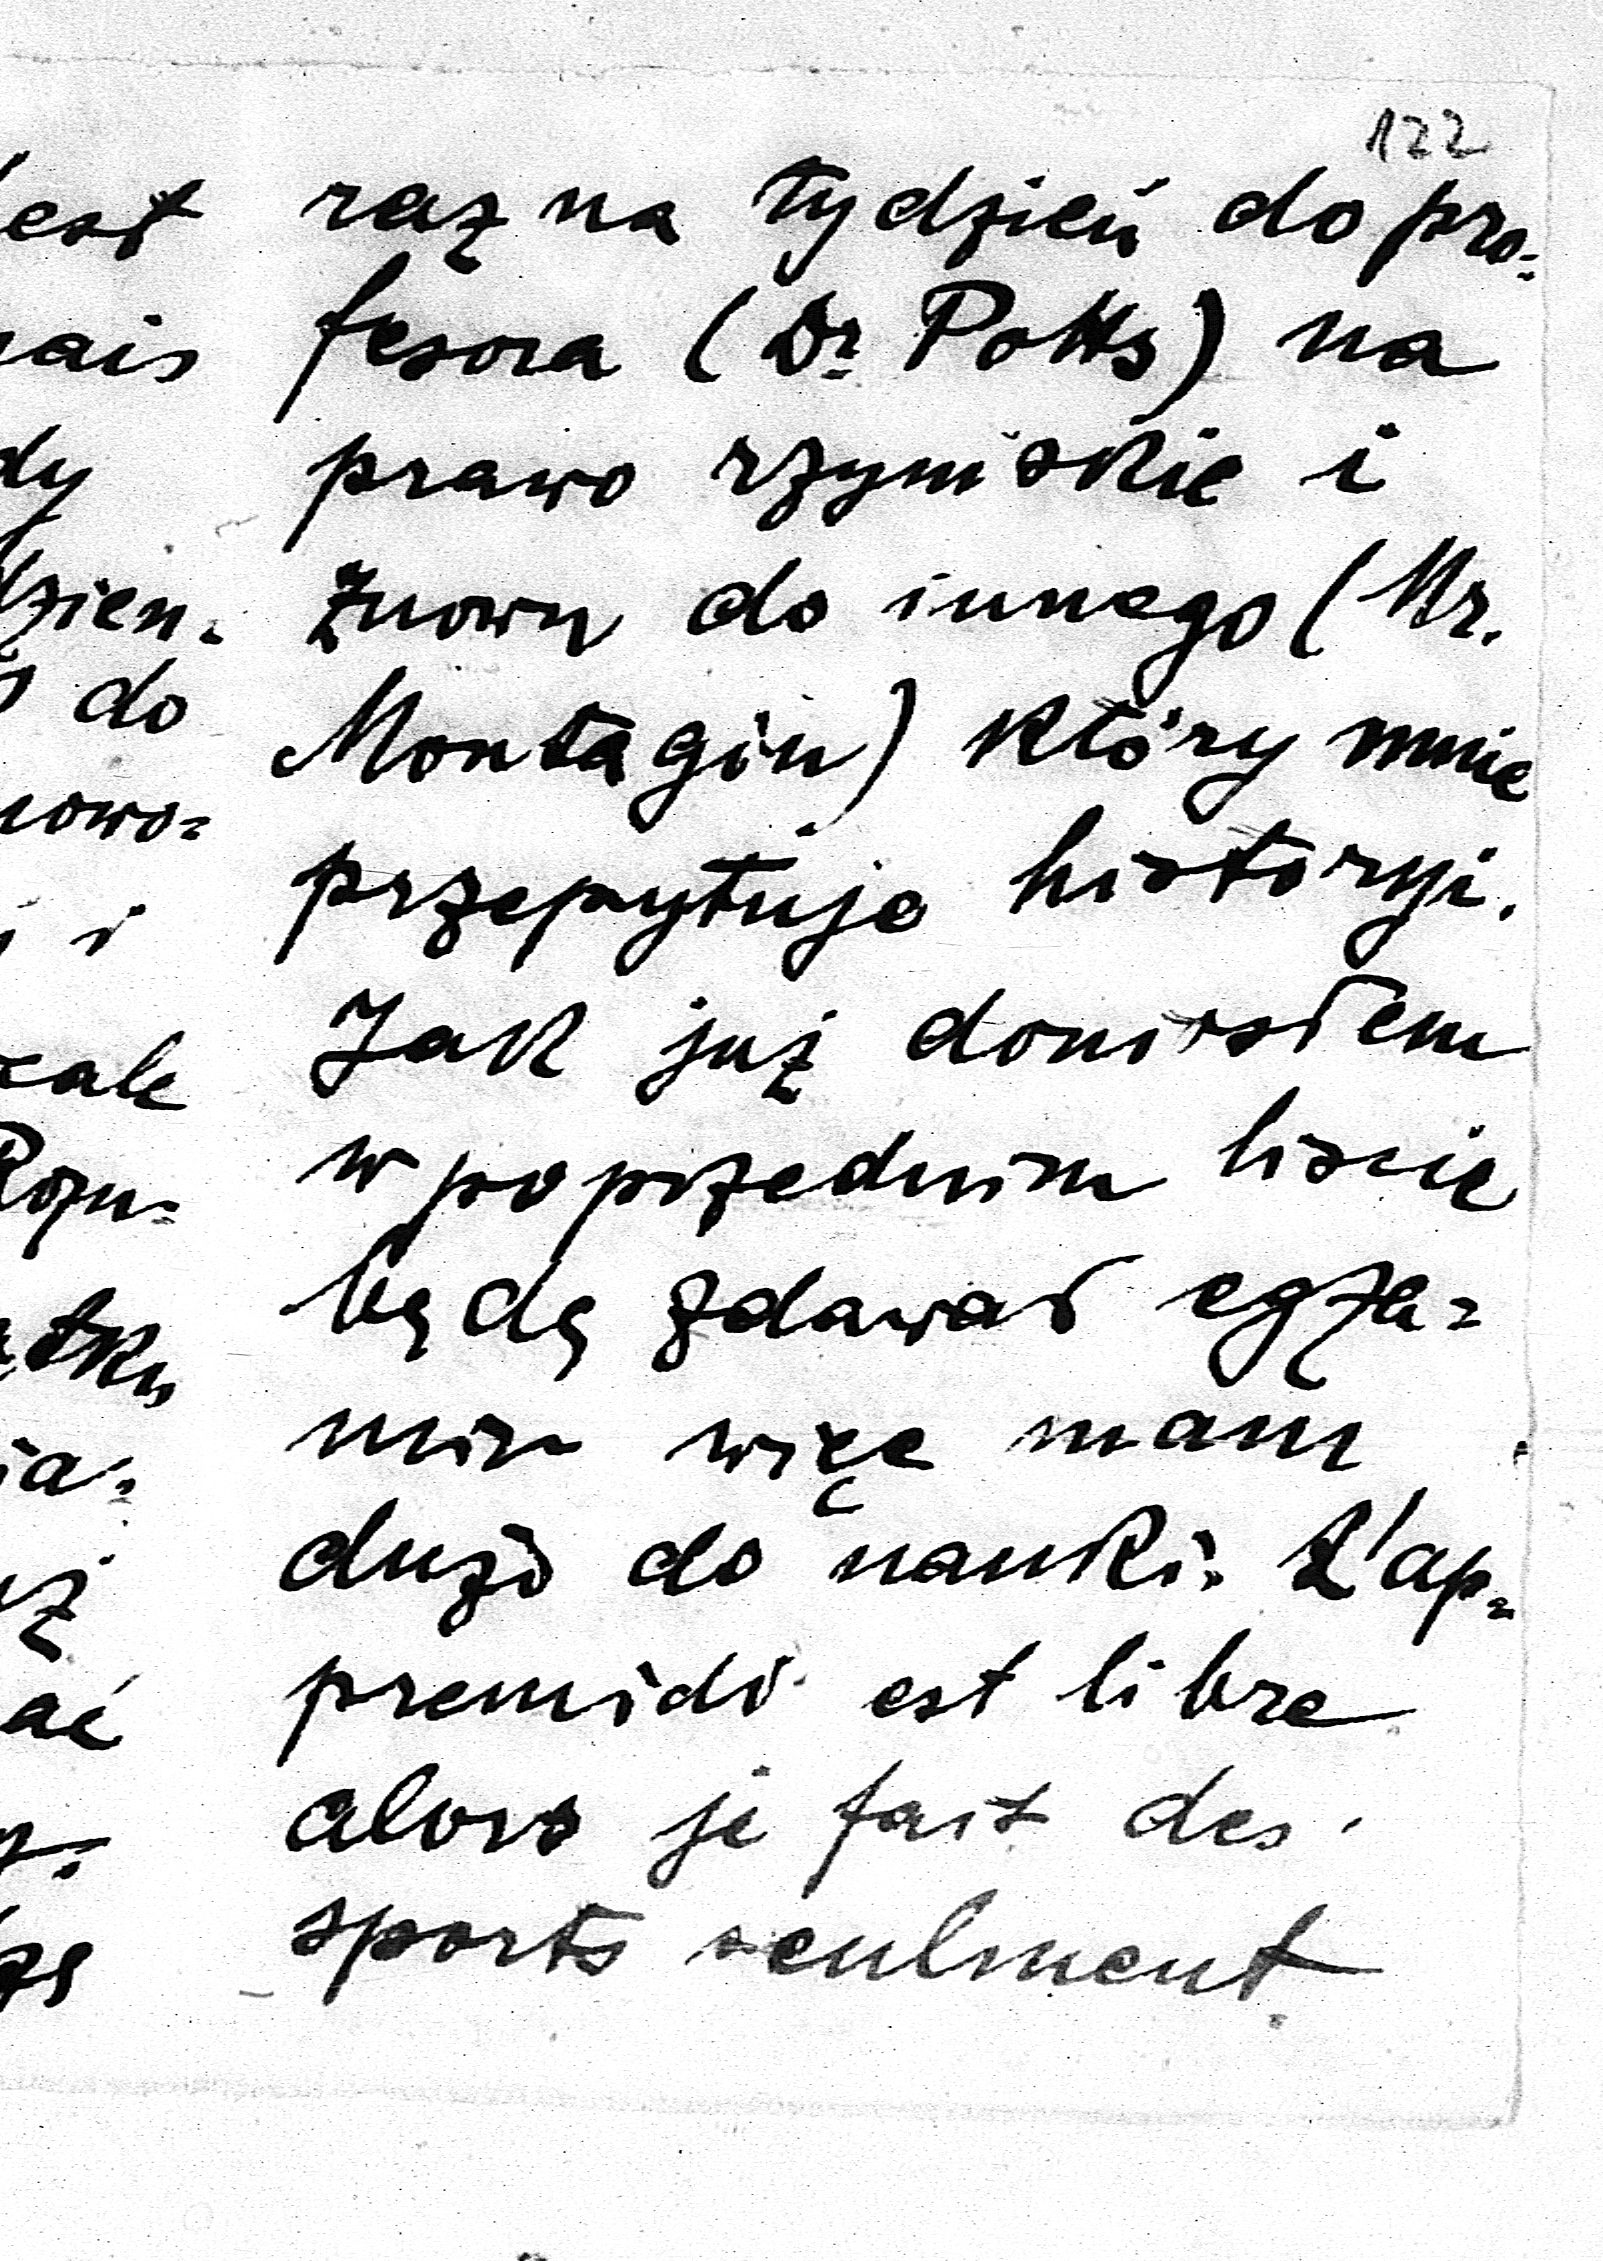 122
raz na tydzień do pro=
fesora (Dr. Potts) na
prawo rzymskie i
znowu do innego (Mr.
Montagiu) który mnie
przepytuje historyi.
Jak już doniosłem
w poprzednim liscie
będę zdawał egza=
min więc mam
dużo do nauki. L'ap=
premidi est libre
alors je fait des
sports seulment.
est
ais
dy
dzien=
do
nowo=
i
cale
Rozu=
tku
ia=
uż
ać